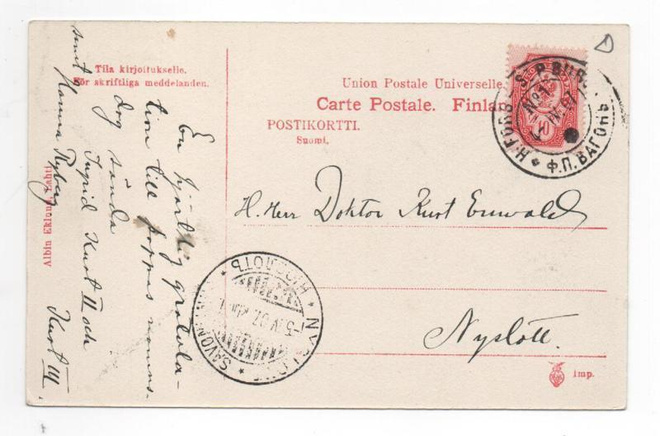 Tila kirjoitukselle.
För skriftliga meddelanden.
Union Postale Universelle.
Carte Postale. Finlan
POSTIKORTTI.
Suomi.
H. Herr Doktor Kurt
Nyslott.
En hjärtlig gratula-
tion till pappas namns-
dag sända
Ingrid Kurt II och
Kurt III.
samt
Albin Eklund, Lahti
H:FORS - S:T P.BURG
Ф.П. ВАГОНЪ
НЕЙШЛОТЪ
NYSLOTT
10
imp.